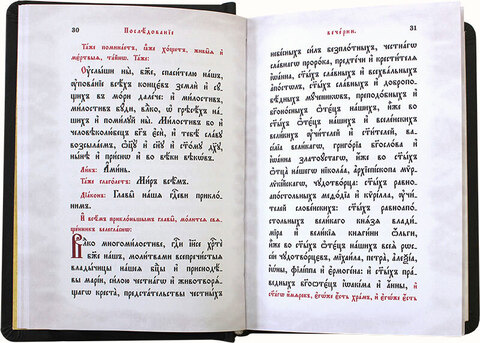 30
Послѣ́дованїе
Та́же помина́етъ, и҆̀хже хо́щетъ, живы̑ѧ и҆
мє́ртвыѧ, та́йнѡ. Та́же:
Оу҆слы́ши ны̀, бж҃е, спаси́телю на́шъ,
ᲂу҆пова́нїе всѣ́хъ концє́въ землѝ и҆ су́-
щихъ въ мо́ри дале́че: и҆ млⷭ҇тивъ,
ми́лостивъ бу́ди, влⷣко, ѡ҆ грѣсѣ́хъ на́-
шихъ и҆ поми́луй ны̀. Ми́лостивъ бо и҆
человѣколю́бецъ бг҃ъ є҆сѝ, и҆ тебѣ̀ сла́ву
возсыла́емъ, ѻ҆ц҃ꙋ̀ и҆ сн҃ꙋ и҆ ст҃о́мꙋ дх҃ꙋ,
ны́нѣ и҆ при́снѡ и҆ во вѣ́ки вѣкѡ́въ.
Ли́къ: А҆ми́нь.
Та́же глаго́летъ: Ми́ръ всѣ̑мъ.
Дїа́конъ: Главы̑ на́шѧ гдⷭ҇еви прикло-
ни́мъ.
И҆ всѣ̑мъ прикло́ньшымъ главы̑, мо́литсѧ свѧ-
ще́нникъ велегла́снѡ:
Влⷣко многомлⷭ҇тиве, гдⷭ҇и і҆и҃се хрⷭ҇тѐ
бж҃е на́шъ, моли́твами всепречⷭ҇тыѧ
влⷣчцы на́шеѧ бцⷣы и҆ приснодв҃-
ы мр҃і́и, си́лою чⷭ҇тна́гѡ и҆ животворѧ́-
щагѡ крⷭ҇та̀, предста́тельствы чⷭ҇тны́хъ
31
вече́рни.
небе́сныхъ си́лъ безпло́тныхъ, чⷭ҇тна́гѡ
сла́внагѡ проро́ка, предте́чи и҆ крⷭ҇ти́телѧ
і҆ѡа́нна, ст҃ы́хъ сла́вныхъ и҆ всехва́льныхъ
а҆по́стѡлъ, ст҃ы́хъ сла́вныхъ и҆ добропо-
бѣ́дныхъ мч҃нкѡвъ, преподо́бныхъ и҆
бг҃оно́сныхъ ѻ҆тє́цъ на́шихъ, и҆̀же во
ст҃ы́хъ ѻ҆тє́цъ на́шихъ и҆ вселе́нскихъ
вели́кихъ ᲂу҆чи́телей и҆ ст҃и́телей, васі́-
лїа вели́кагѡ, григо́рїа бг҃осло́ва и҆
і҆ѡа́нна златоꙋ́стагѡ, и҆̀же во ст҃ы́хъ
ѻ҆тца̀ на́шегѡ нїкола́а, а҆рхїепі́скопа мѵр-
лѷкі́йскагѡ, чꙋдотво́рца: ст҃ы́хъ равно-
а҆по́стѡльныхъ меѳо́дїа и҆ кѷрі́лла, ᲂу҆чи́-
телей слове́нскихъ: ст҃ы́хъ равноапо́-
стольныхъ вели́кагѡ кнѧ́зѧ влади́-
міра и҆ вели́кїѧ кнѧги́ни ѻ҆́льги,
и҆̀же во ст҃ы́хъ ѻ҆тє́цъ на́шихъ всеѧ̀ рѡссі́-
и чꙋдотво́рцєвъ, мїхаи́ла, петра̀, а҆леѯі́а,
і҆ѡ́ны, фїлі́ппа и҆ є҆рмоге́на: ст҃ы́хъ пра́-
ведныхъ бг҃оо́тєцъ і҆ѡакі́ма и҆ а҆́нны, и҆
ст҃а́гѡ и҆́мѧрекъ, є҆гѡ́же є҆́сть хра́мъ, и҆ є҆гѡ́же є҆́сть